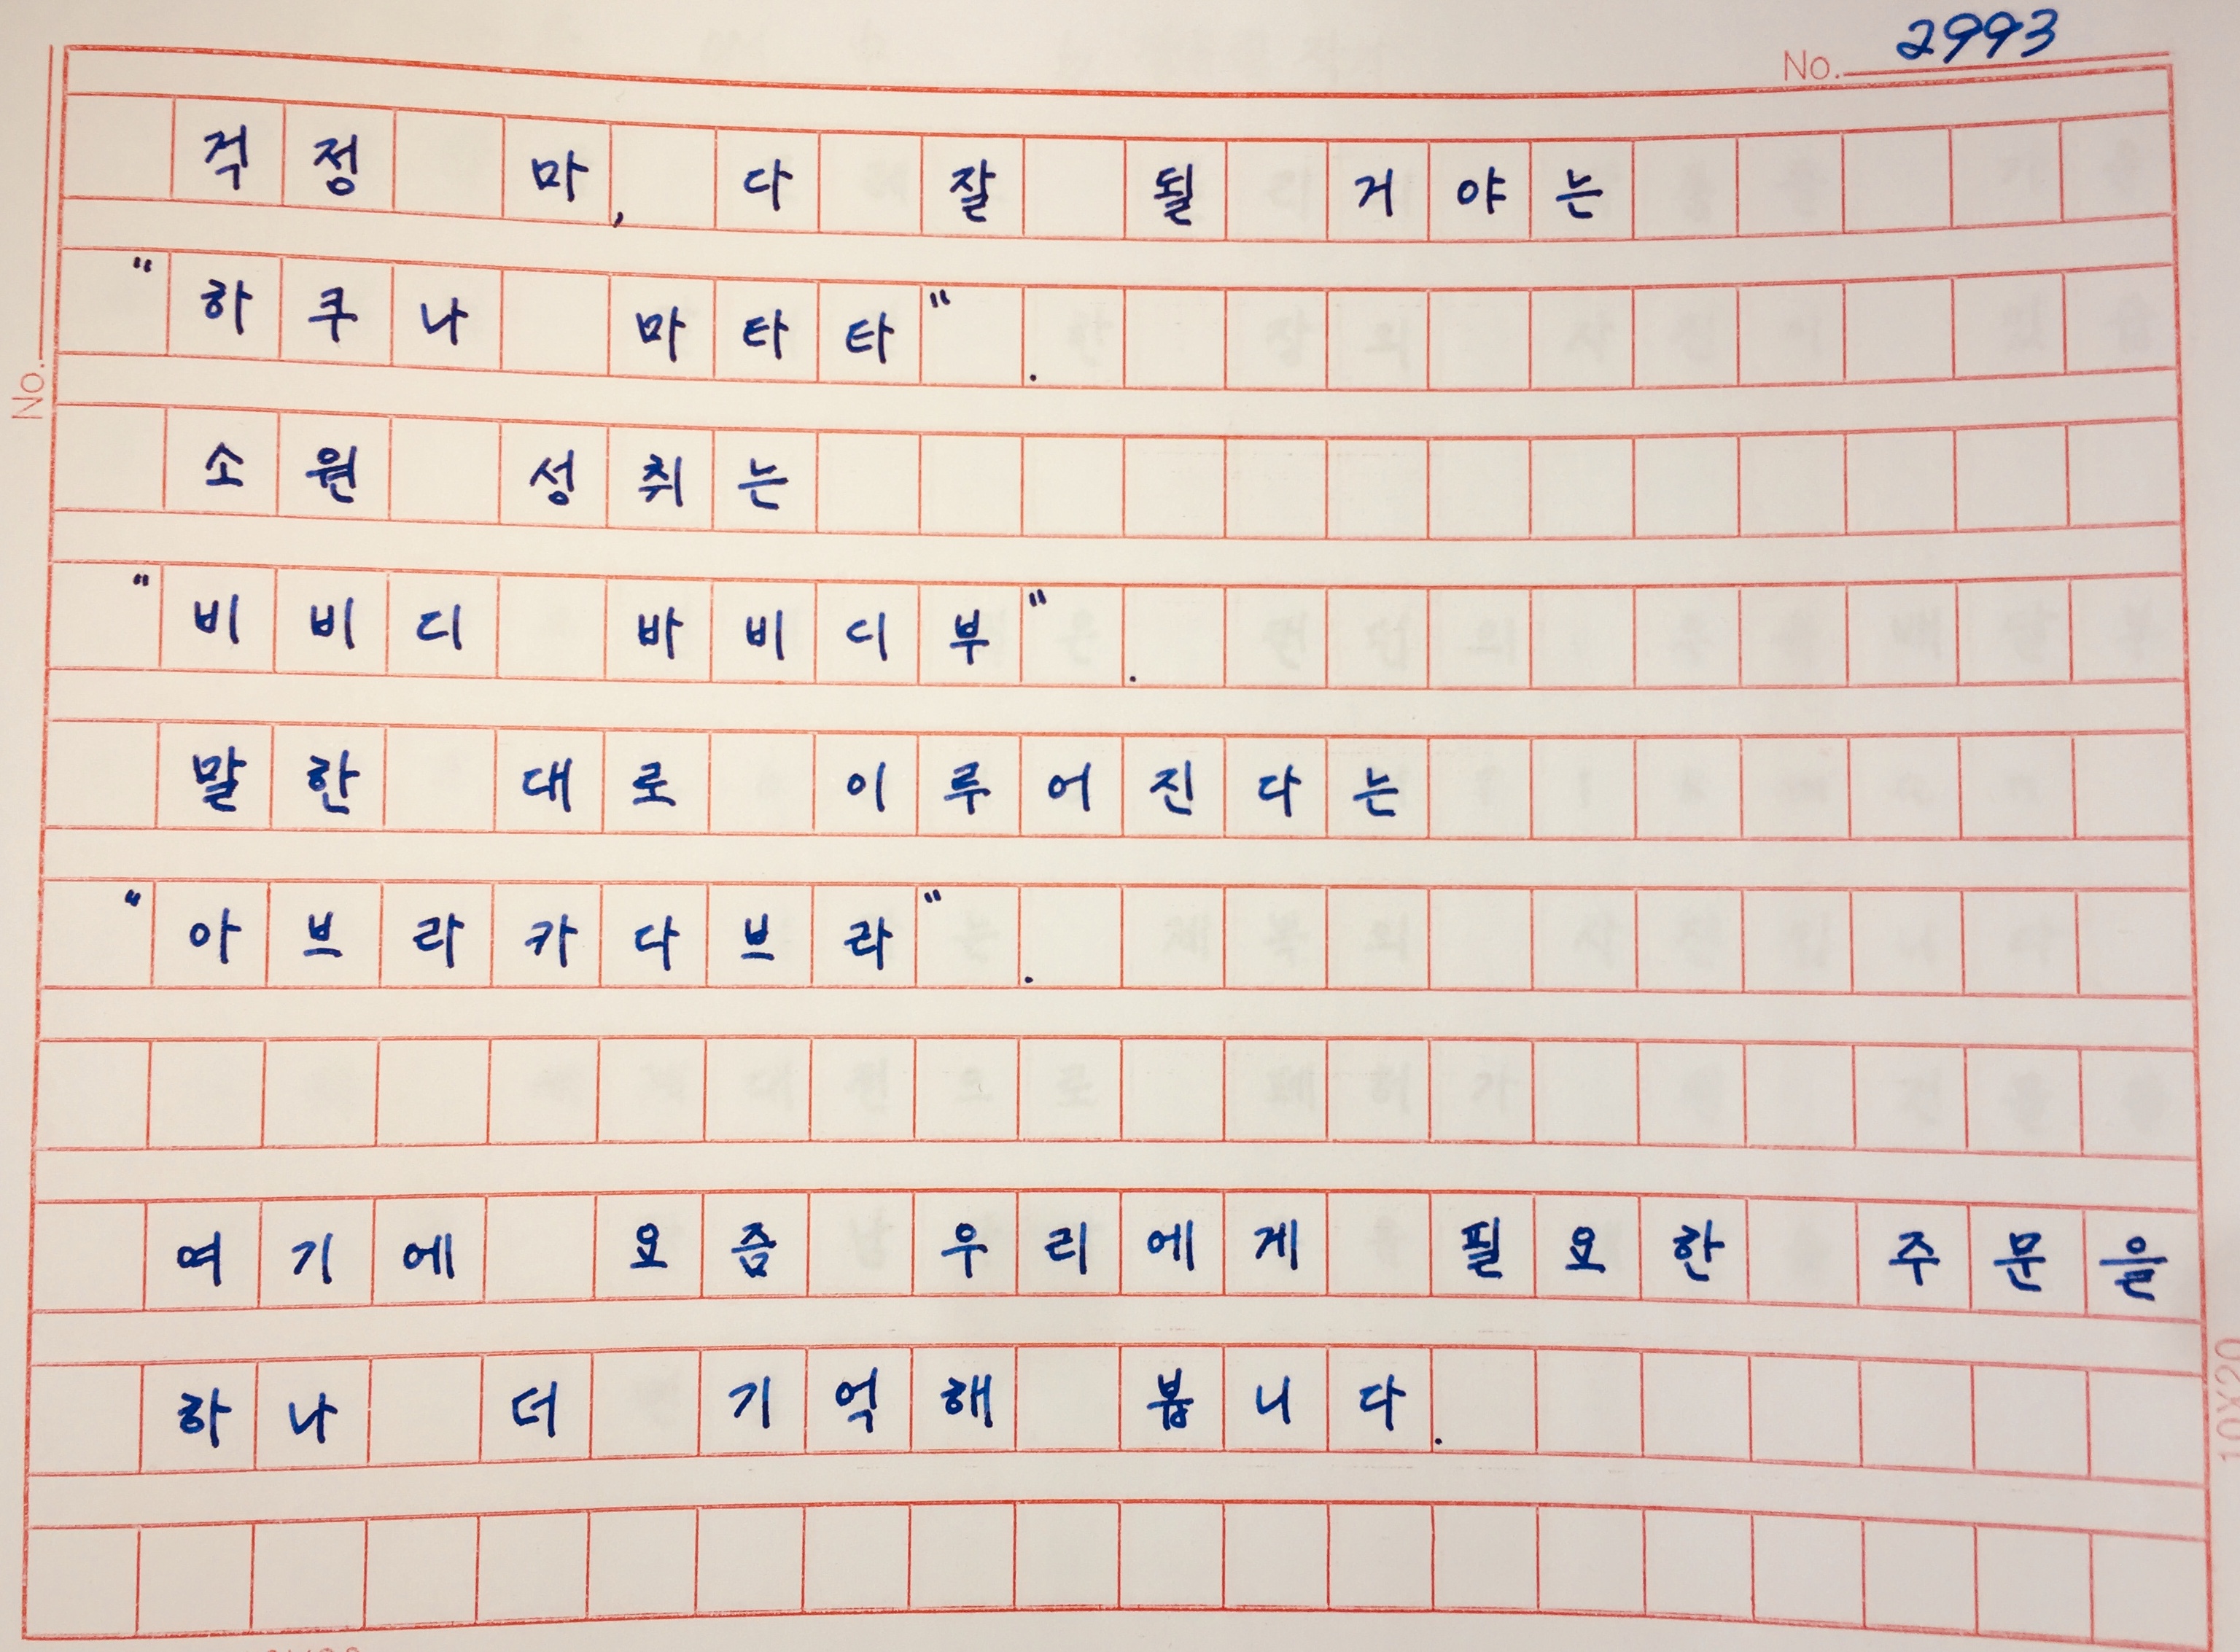 No. 2993
걱정 마, 다 잘 될 거야는
"하쿠나 마타타".
소원 성취는
"비비디 바비디부".
말한 대로 이루어진다는
"아브라카다브라".
여기에 요즘 우리에게 필요한 주문을
하나 더 기억해 봅니다.
No.
10X20